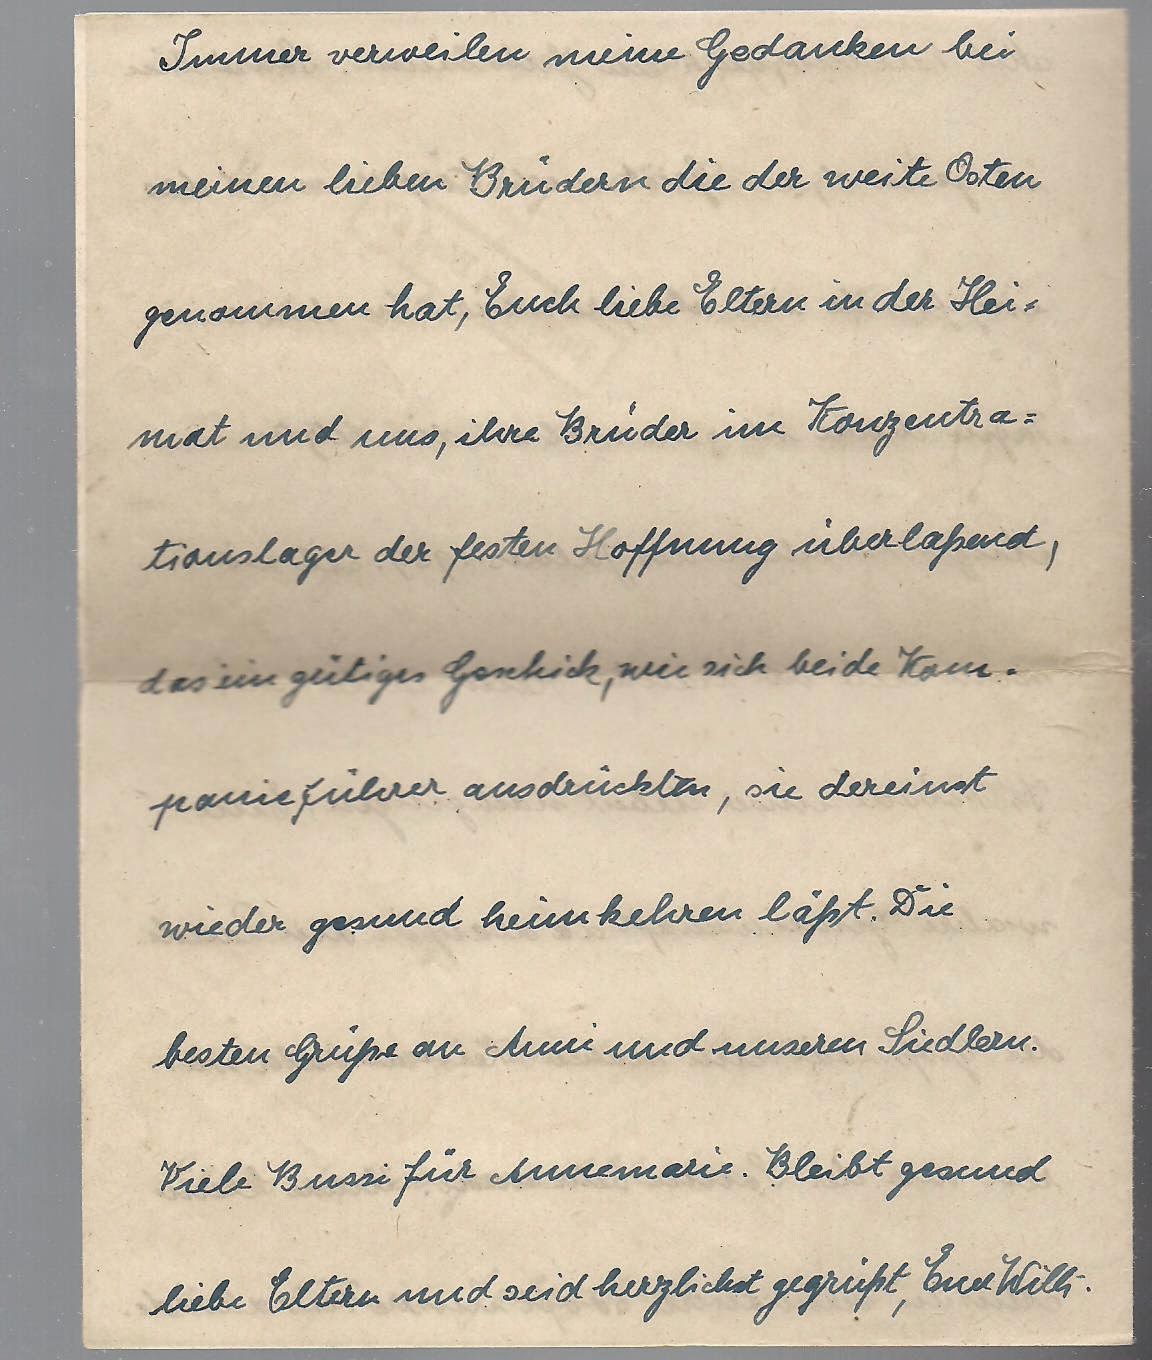 Immer verweilen meine Gedanken bei
meinen lieben Brüdern die der weite Osten
genommen hat, Euch liebe Eltern in der Hei-
mat und uns, ihre Brüder im Konzentra=
tionslager der festen Hoffnung überlaßend,
das ein gütiges Geschick, wie sich beide Kom-
panieführer ausdrückten, sie dereinst
wieder gesund heimkehren läßt. Die
besten Grüße an Anni und unseren Siedlern.
Viele Bussi für Annemarie. Bleibt gesund
liebe Eltern und seid herzlichst gegrüßt, Euer Willi.